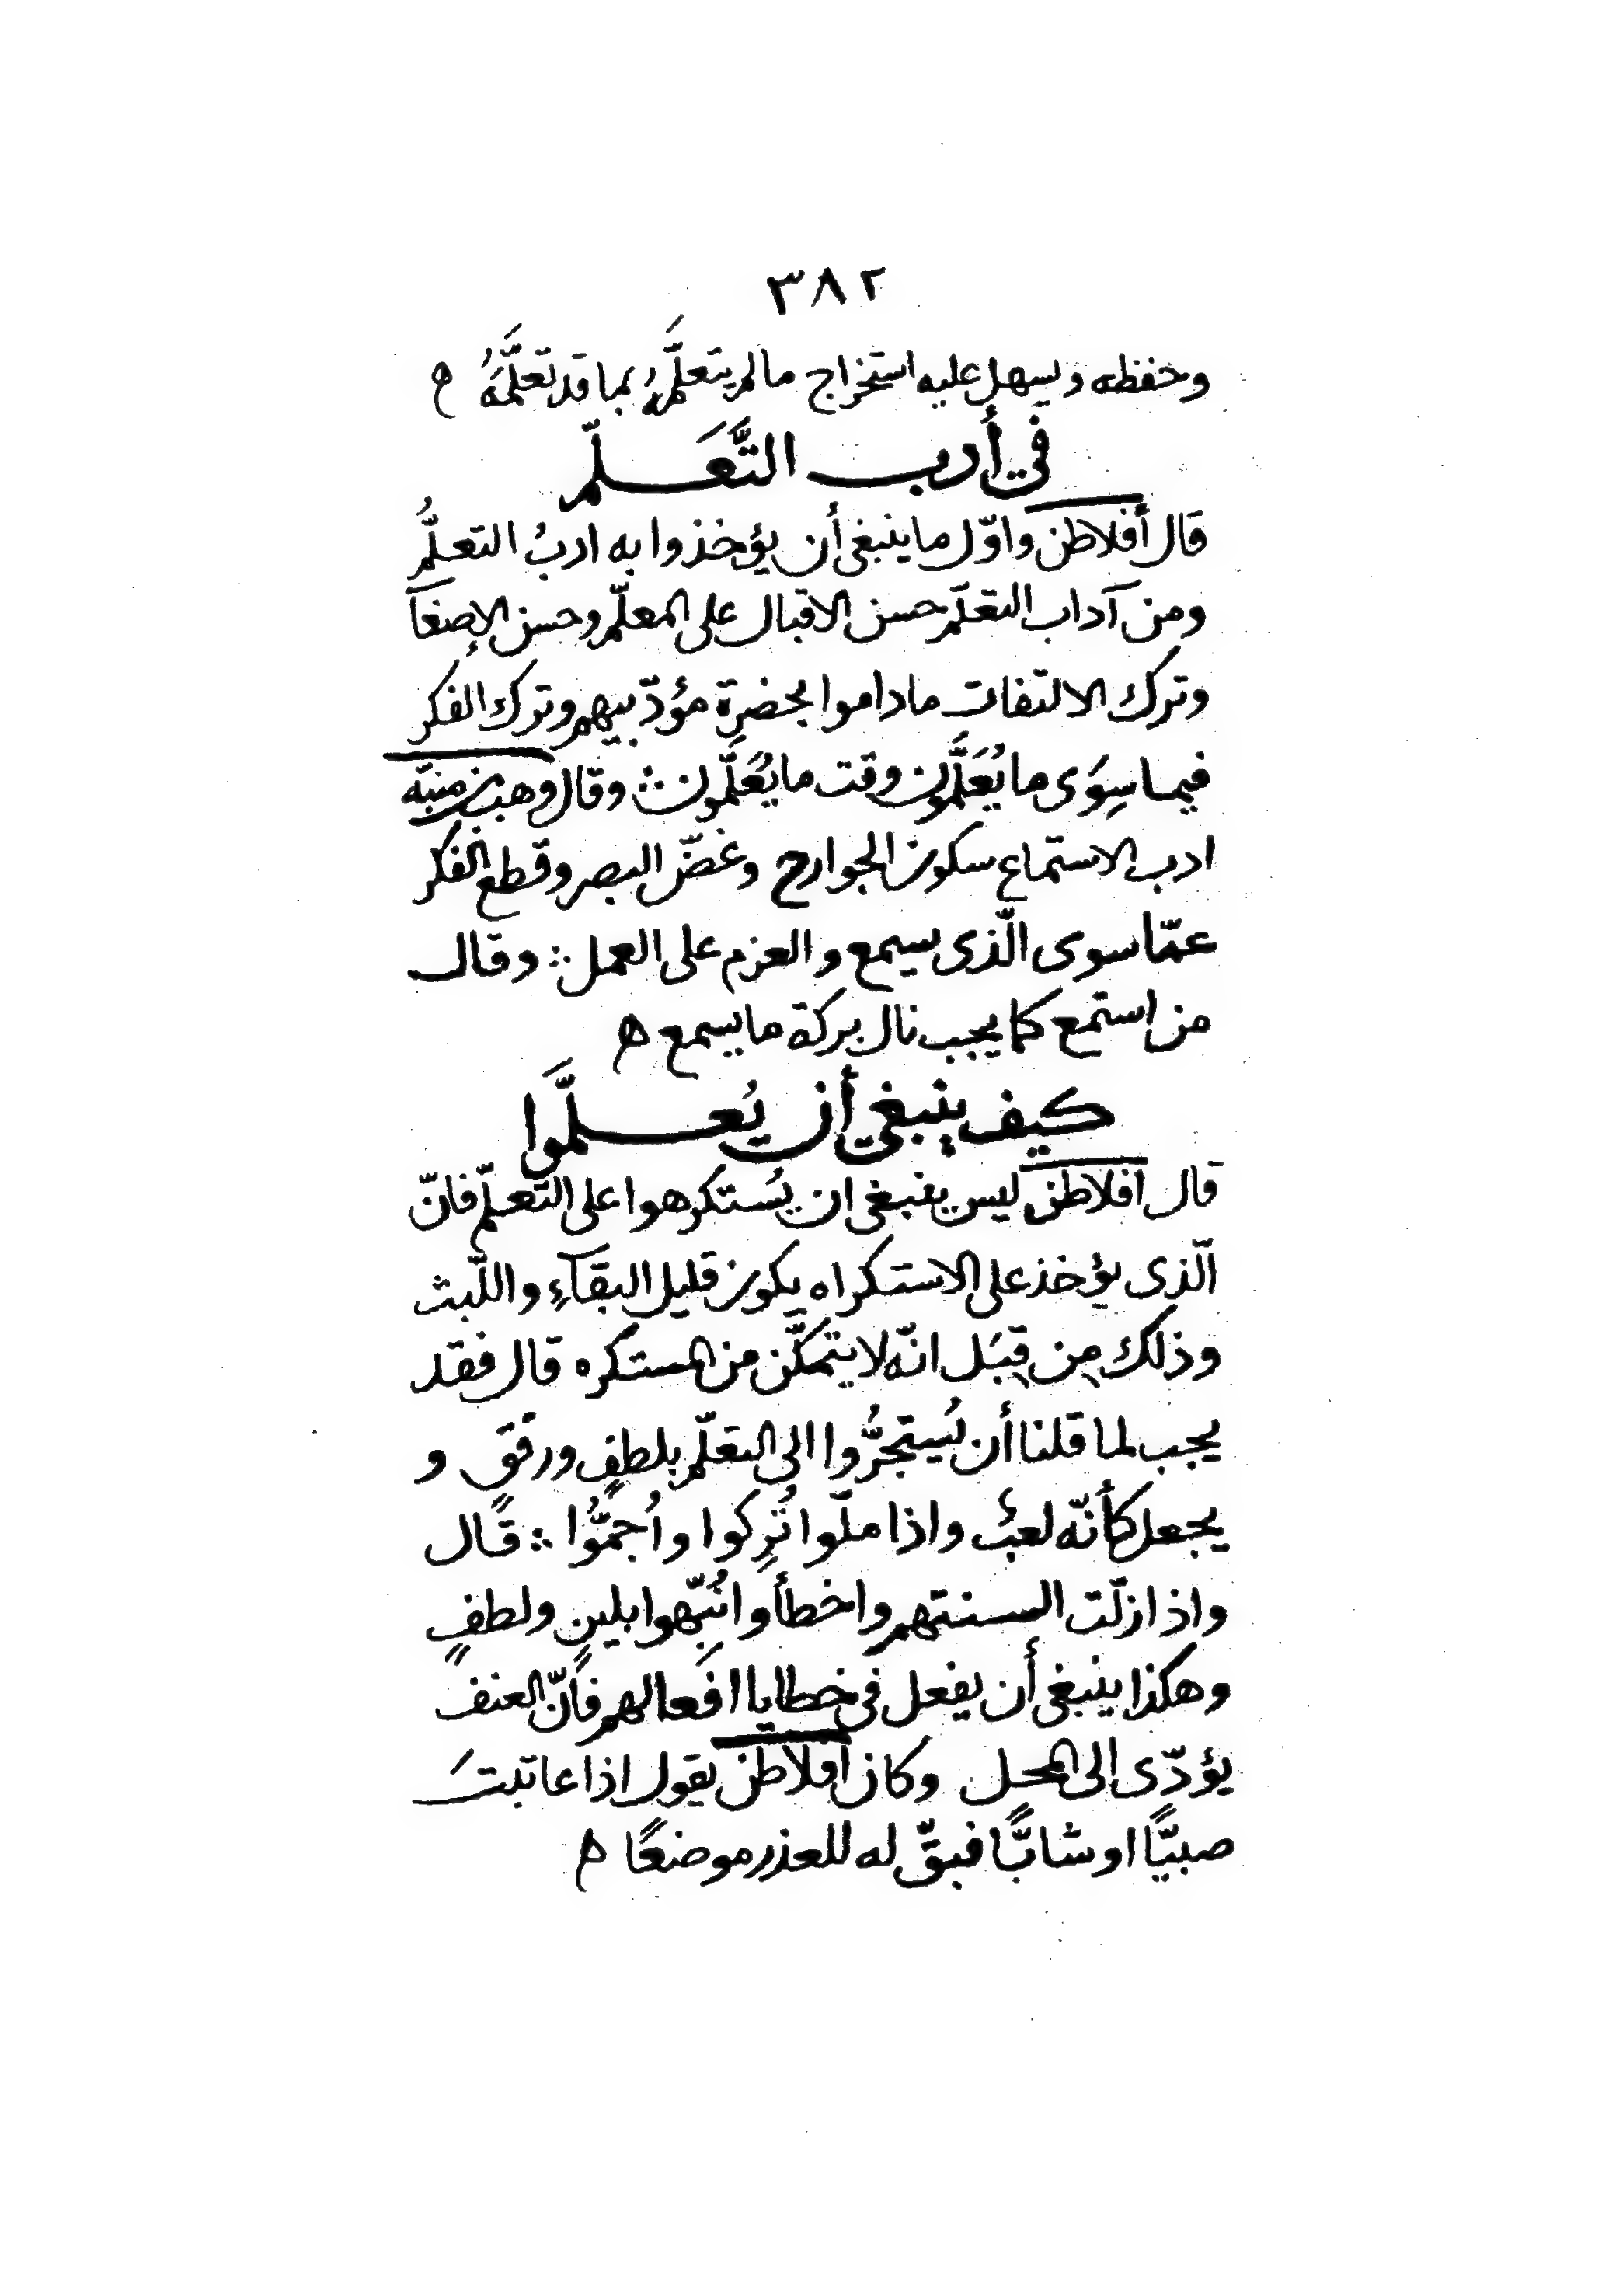 ٣٨٢
وحفظه ويسهل عليه استخراج مالم يتعلَّمْهُ بما قد تعلَّمَهُ ه
في أدب التَّعَلّم
قال أفلاطن واوّل ما ينبغى أن يؤخذوا به ادبُ التعلُّم
ومن آداب التعلّم حسن الاقبال على المعلّم وحسن الإصغآ
وترك الالتفات ماداموا بحضرة مؤدّبيهم وترك الفكر
فيما سِوَى ما يُعَلَّمون وقت ما يُعَلَّمون ∴ وقال وهب بن منبّه
ادب الاستماع سكون الجوارح وغضّ البصر وقطع الفكر
عمّا سوى الّذى يسمع والعزم على العمل ∴ وقال
من استمع كما يجب نال بركة ما يسمع ه
كيف ينبغي أن يُعلَّموا
قال افلاطن ليس ينبغى ان يُستكرهوا على التعلّم فانّ
الّذى يؤخذ على الاستكراه يكون قليل البقآءِ واللّبث
وذلك مِن قِبَل انّه لا يتمكّن من المستكره قال فقد
يجب لما قلنا أن يُستجرُّوا الى التعلّم بلطفٍ ورفقٍ و
يجعل كأنّه لعبٌ واذا ملّوا تُرِكوا واُجمُّوا ∴ قال
واذا زلّت السنتهم واخطأوا نُبِّهوا بلينٍ ولطفٍ
وهكذا ينبغى أن يفعل فى خطايا افعالهم فانّ العنف
يؤدّى الى المحل وكان أفلاطن يقول اذا عاتبتَ
صبيًّا او شابًّا فبقِّ له للعذر موضعًا ه